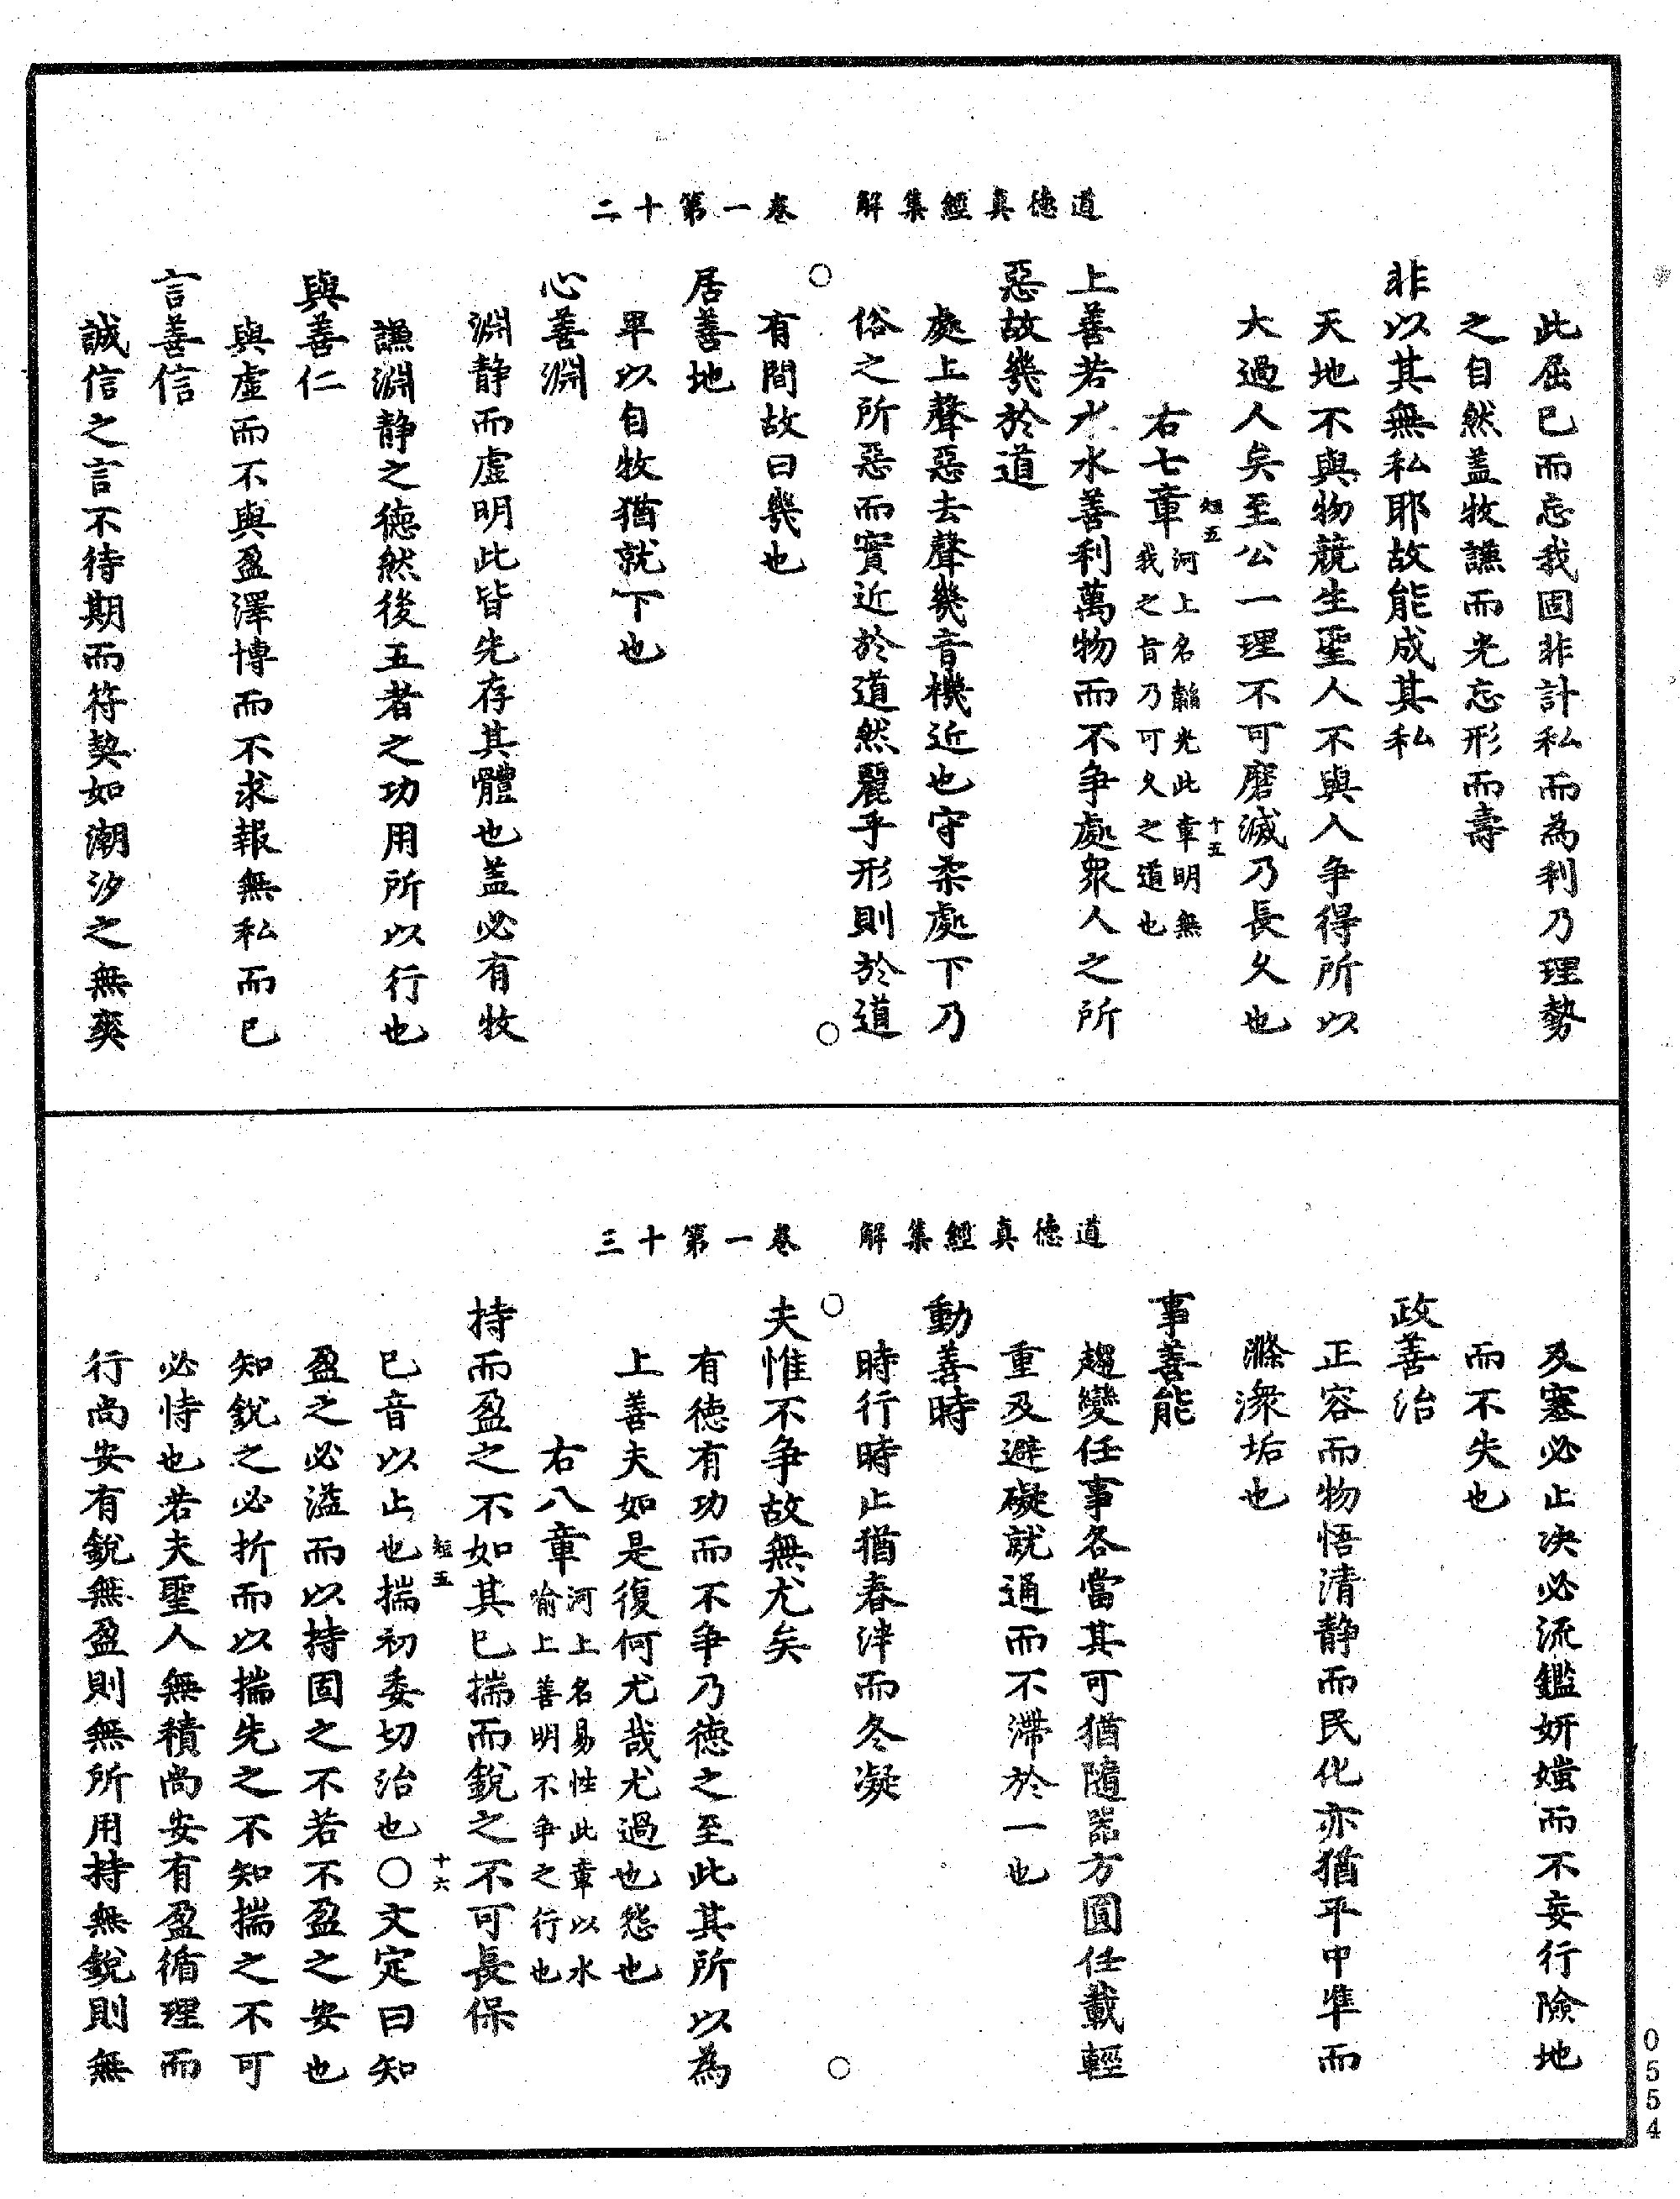 道德真經集解　卷一第十二
此屈己而忘我固非計私而為利乃理勢
之自然蓋牧謙而光忘形而壽
非以其無私耶故能成其私
天地不與物競生聖人不與人爭得所以
大過人矣至公一理不可磨滅乃長久也
短五
十五
右七章
河上名韜光此章明無
我之旨乃可久之道也
上善若水水善利萬物而不爭處衆人之所
惡故幾於道
處上聲惡去聲幾音機近也守柔處下乃
俗之所惡而實近於道然麗乎形則於道
有間故曰幾也
居善地
卑以自牧猶就下也
心善淵
淵静而虛明此皆先存其體也蓋必有牧
謙淵静之德然後五者之功用所以行也
與善仁
與虛而不與盈澤博而不求報無私而已
言善信
誠信之言不待期而符契如潮汐之無爽
道德真經集解　卷一第十三
及塞必止決必流鑑妍媸而不妄行險地
而不失也
政善治
正容而物悟清静而民化亦猶平中準而
滌潨垢也
事善能
趨變任事各當其可猶隨器方圓任載輕
重及避礙就通而不滯於一也
動善時
時行時止猶春泮而冬凝
夫惟不爭故無尤矣
有德有功而不爭乃德之至此其所以為
上善夫如是復何尤哉尤過也愆也
右八章
河上名易性此章以水
喻上善明不爭之行也
持而盈之不如其已揣而銳之不可長保
短五
十六
已音以止也揣初委切治也〇文定曰知
盈之必溢而以持固之不若不盈之安也
知銳之必折而以揣先之不知揣之不可
必恃也若夫聖人無積尚安有盈循理而
行尚安有銳無盈則無所用持無銳則無
0554